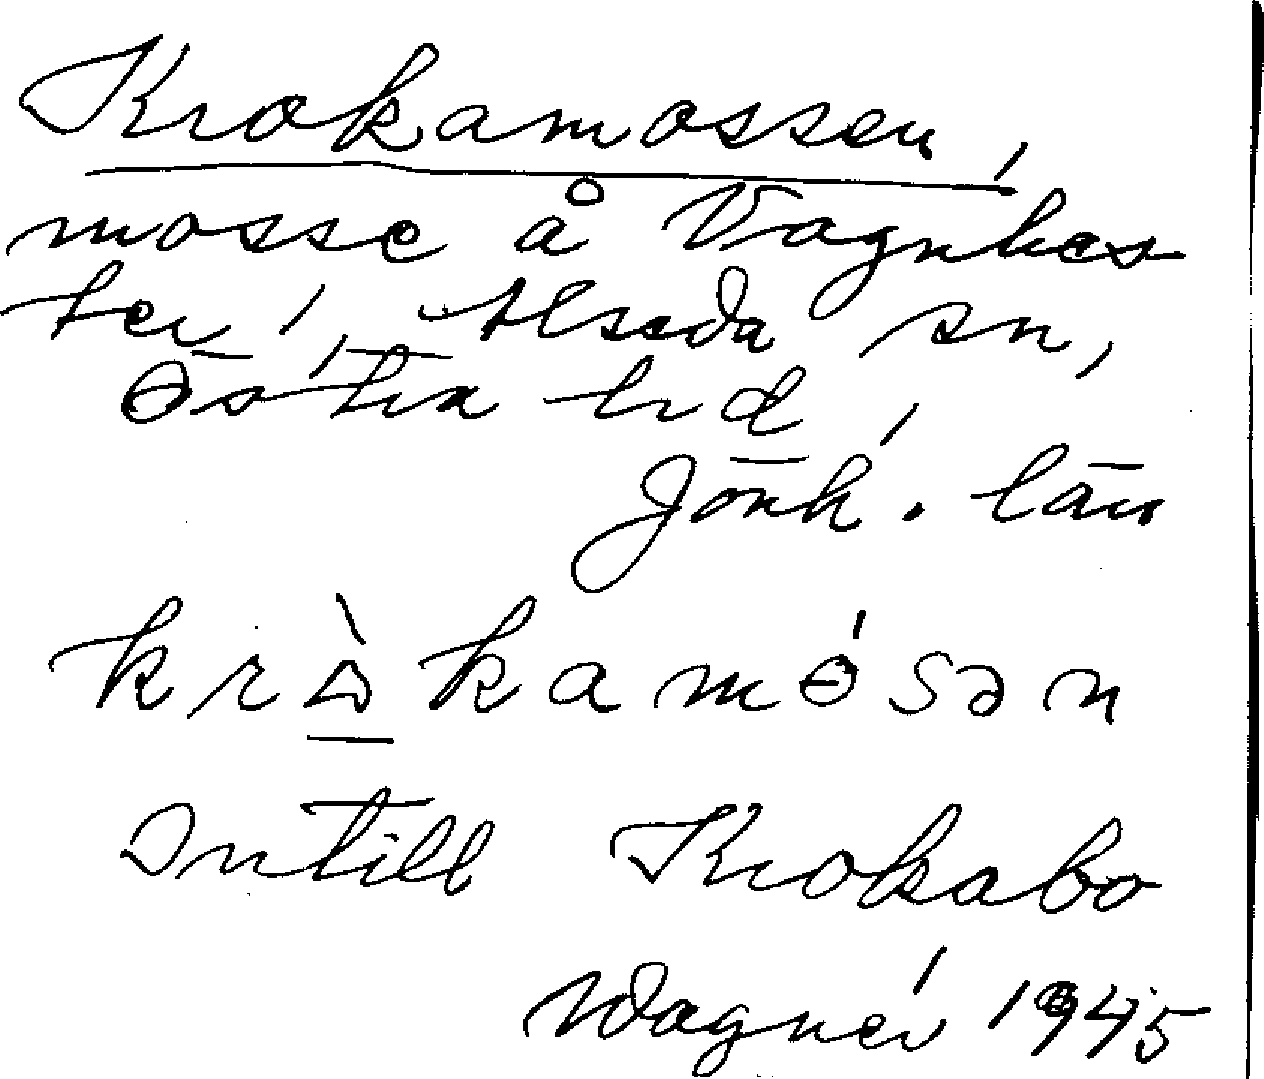 Krokamossen,
mosse å Vagnhes
ter, Alseda sn,
Östra hd,
Jönk. län
kròkamósən
Intill Krokabo
Wagner 1945